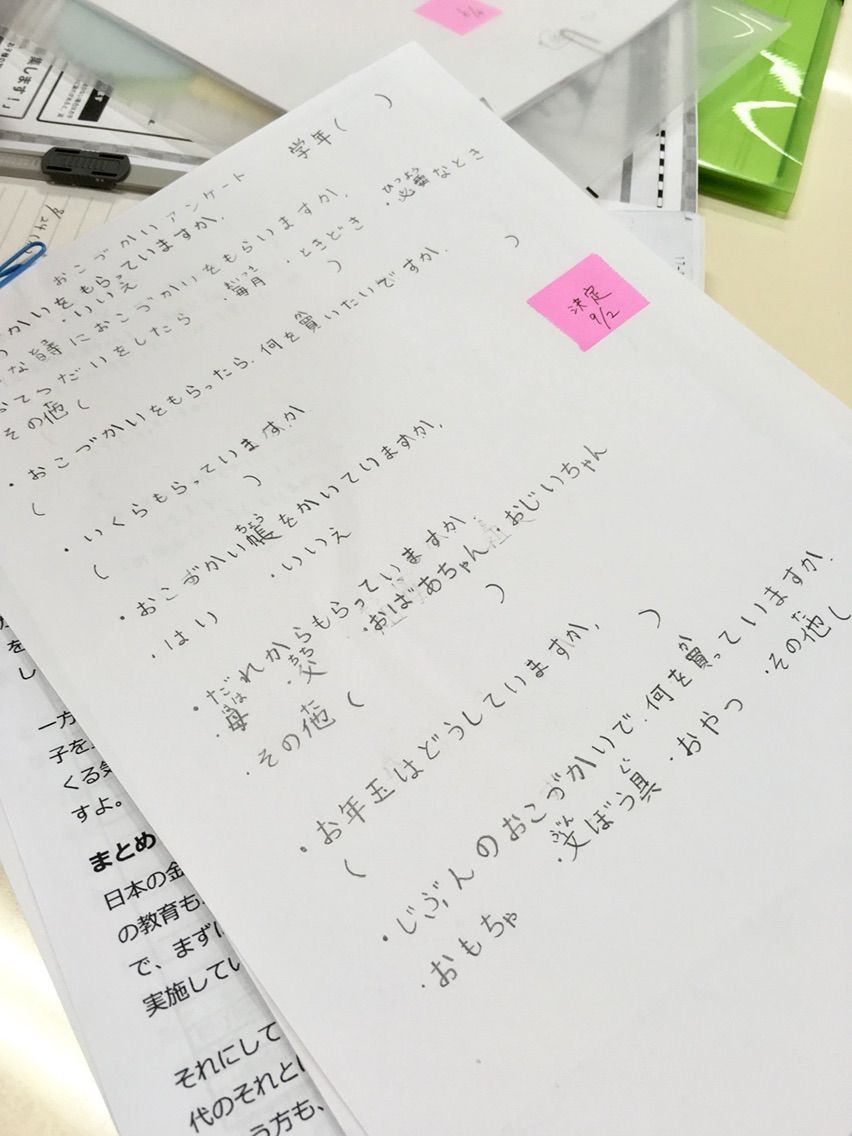 学年( )
おこづかいアンケート
づかいをもらっていますか.
・いいえ
な時におこづかいをもらいますか.
てつだいをしたら ・毎月 ・ときどき ・必要なとき
まいつき
ひつよう
その他( )
た
・おこづかいをもらったら.何を買いたいですか.
か
( )
・いくらもらっていますか
( )
・おこづかい帳をかいていますか.
ちょう
・はい ・いいえ
・だれからもらっていますか.
・母 ・父 ・おばあちゃん・おじいちゃん
はは
ちち
・その他( )
た
・お年玉はどうしていますか.
( )
・じぶんのおこづかいで.何を買っていますか.
か
・おもちゃ ・文ぼう具 ・おやつ ・その他(
ぶん
ぐ
た
決定
9/2
集します!」
一方
子を
くる
すよ。
まとめ
日本の金
の教育も
で、まず
実施してい
それにして
代のそれと
う方も、